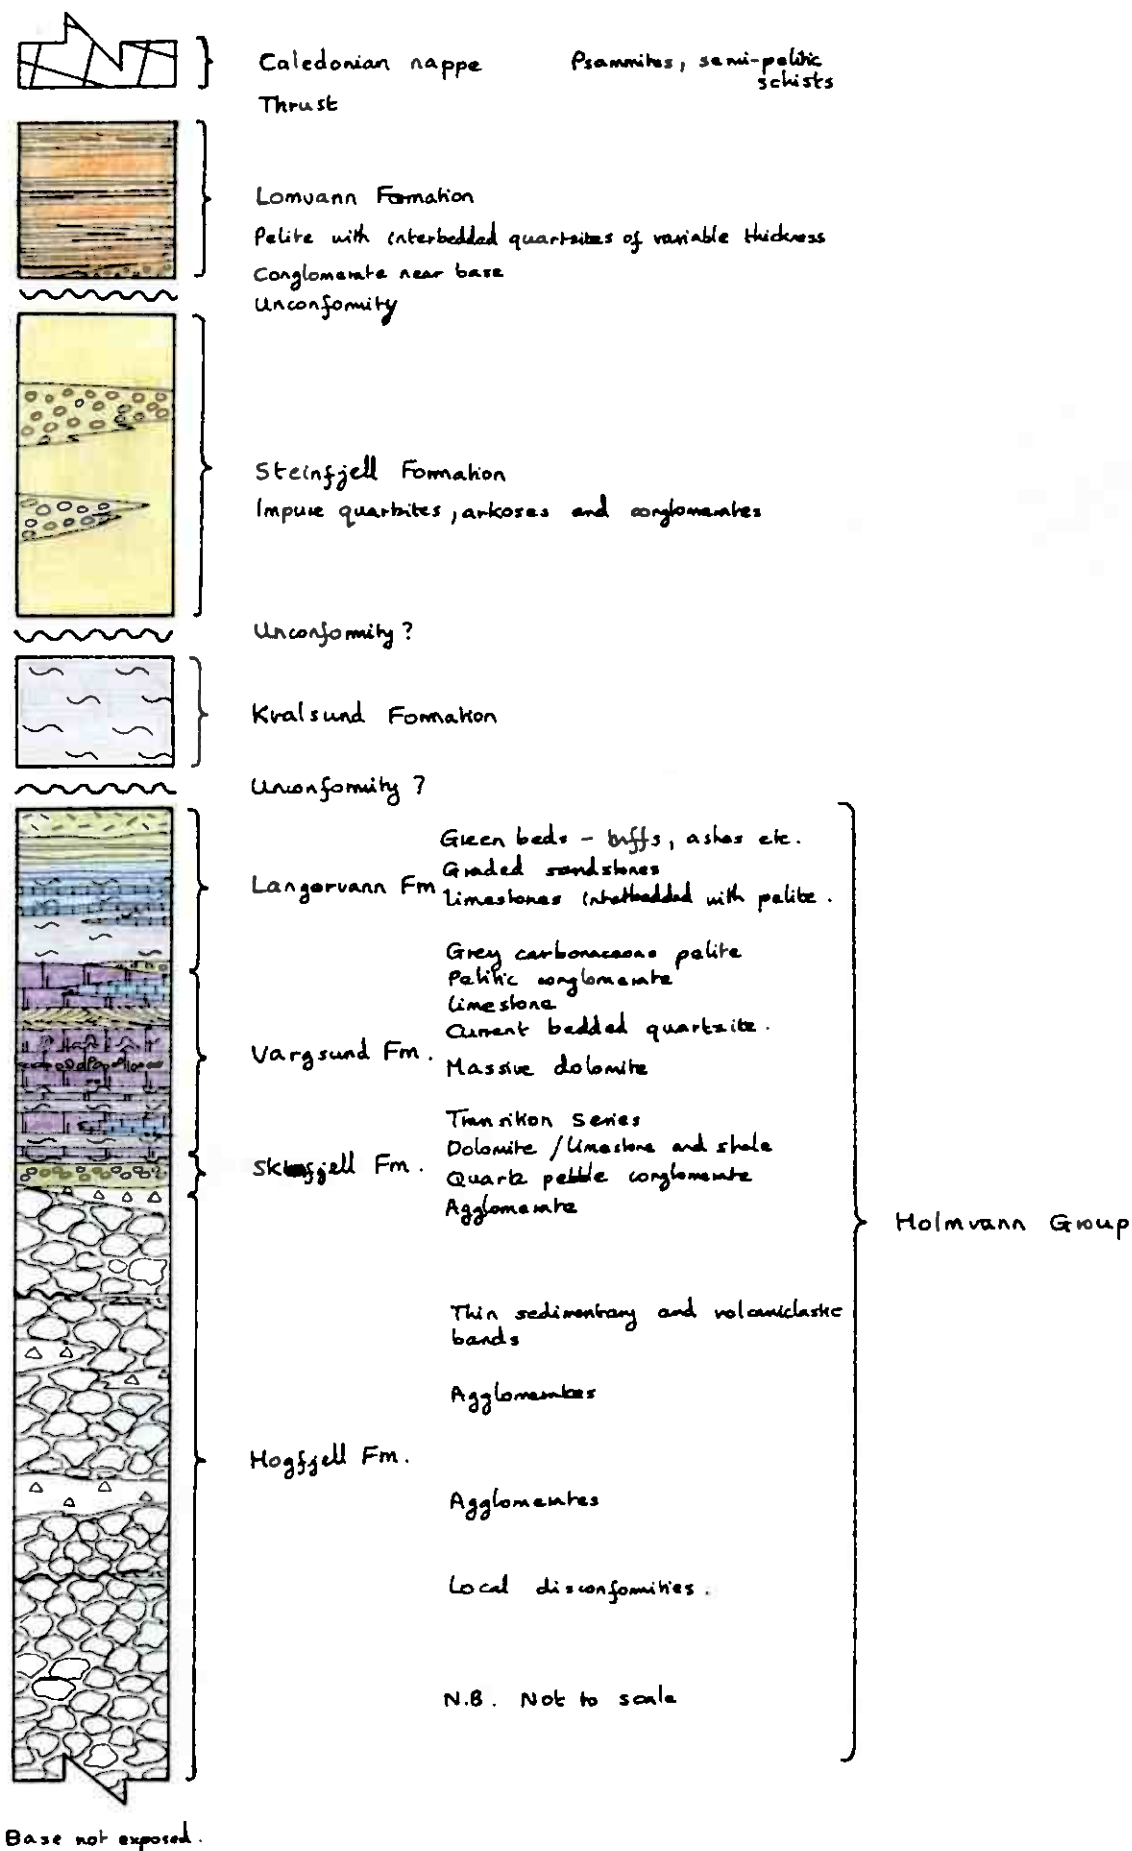 Caledonian nappe Psammites, semi-pelitic
schists
Thrust
Lomvann Formation
Pelite with interbedded quartzites of variable thickness
Conglomerate near base
Unconformity
Steinfjell Formation
Impure quartzites, arkoses and conglomerates
Unconformity?
Kvalsund Formation
Unconformity?
Green beds - tuffs, ashes etc.
Graded sandstones
Langorvann Fm
Limestones interbedded with pelite.
Grey carbonaceous pelite
Pelitic conglomerate
Limestone
Current bedded quartzite.
Vargsund Fm.
Massive dolomite
Transition Series
Dolomite / limestone and shale
Fm.
Quartz pebble conglomerate
Agglomerate
Holmvann Group
Thin sedimentary and volcaniclastic
bands
Agglomerates
Hogfjell Fm.
Agglomerates
Local disconformities.
N.B. Not to scale
Base not exposed.